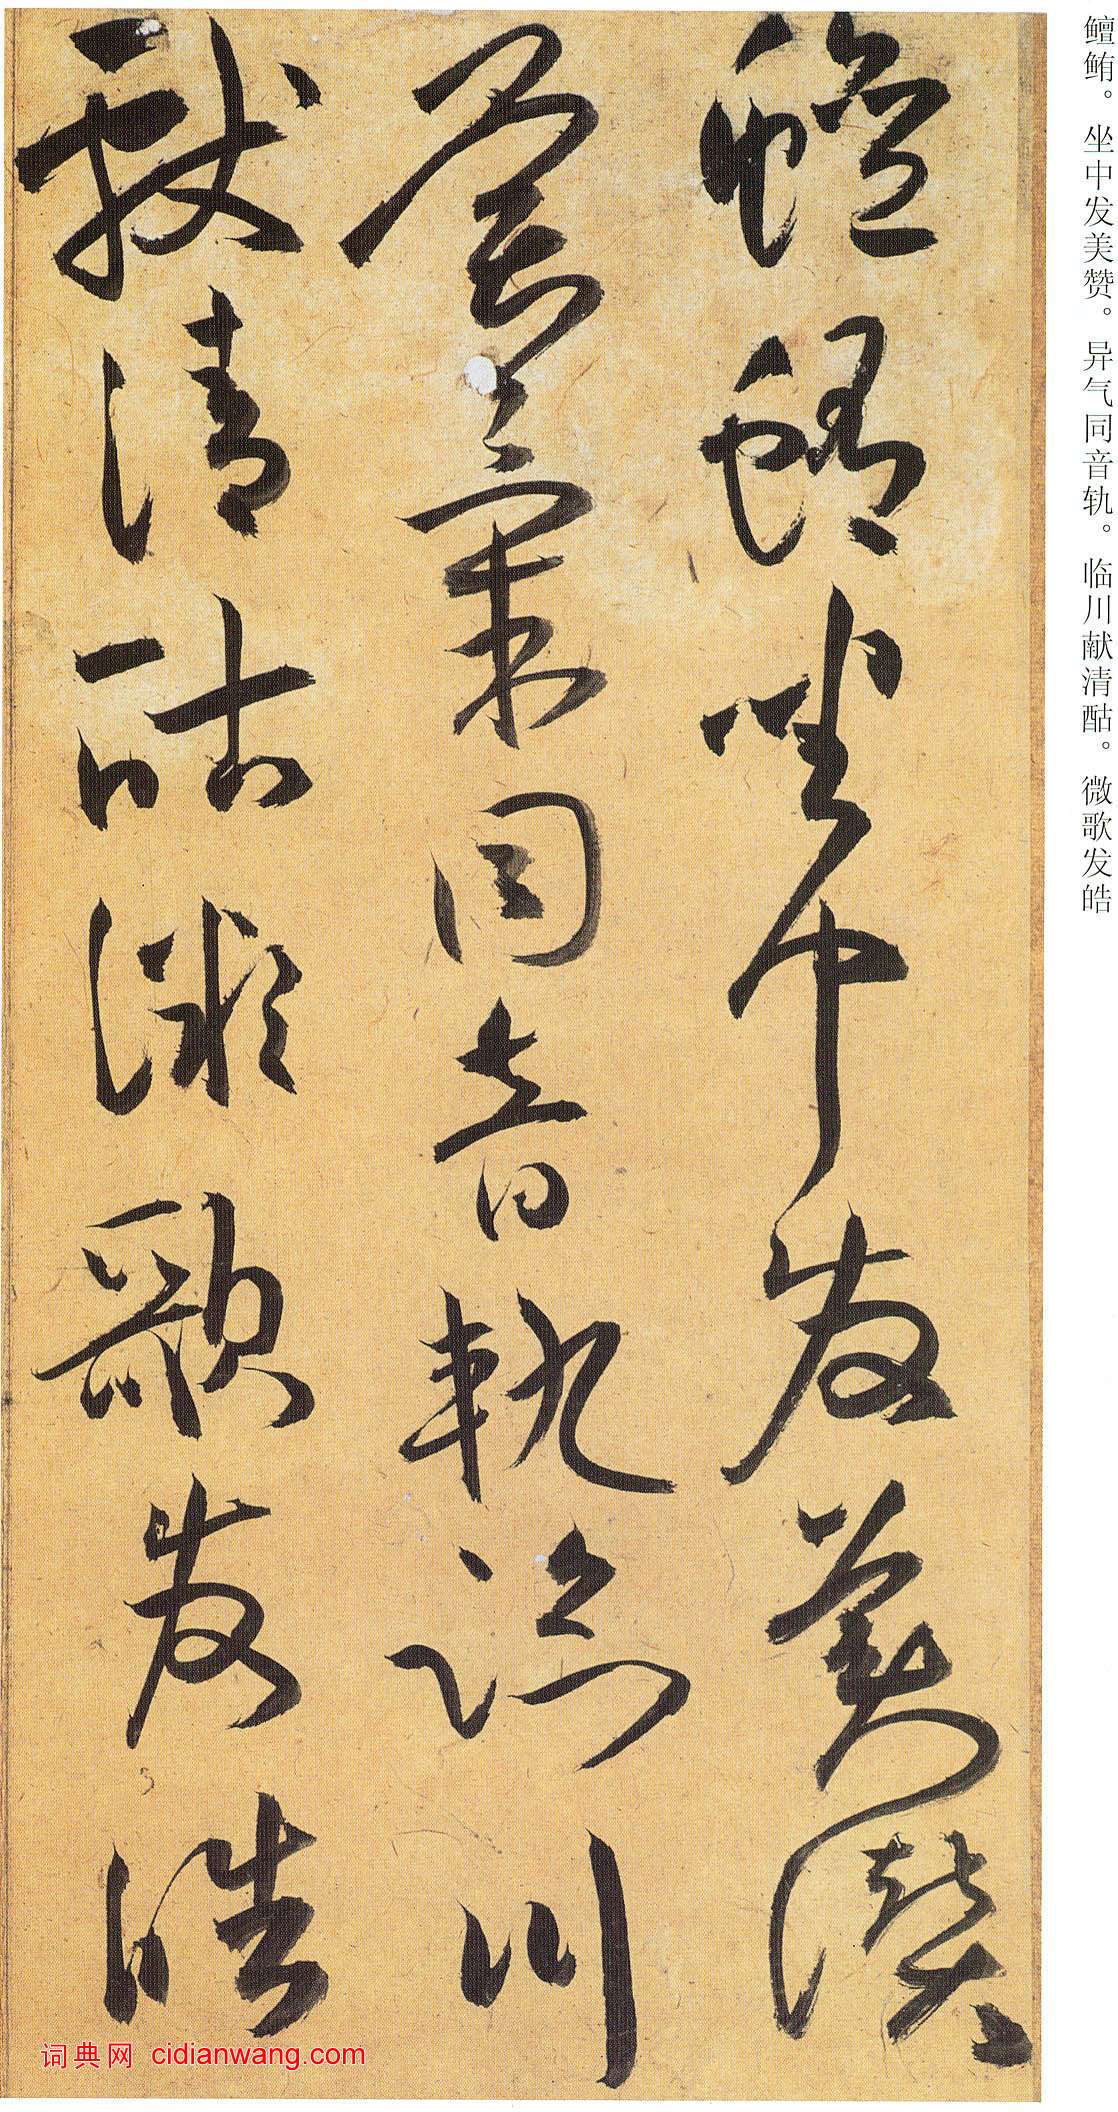 鳣鲔。坐中发美赞。异气同音轨。临川献清酤。微歌发皓
鱣鮪坐中發美讚
異氣同音軌臨川
獻清酤微歌發皓
词典网 cidianwang.com